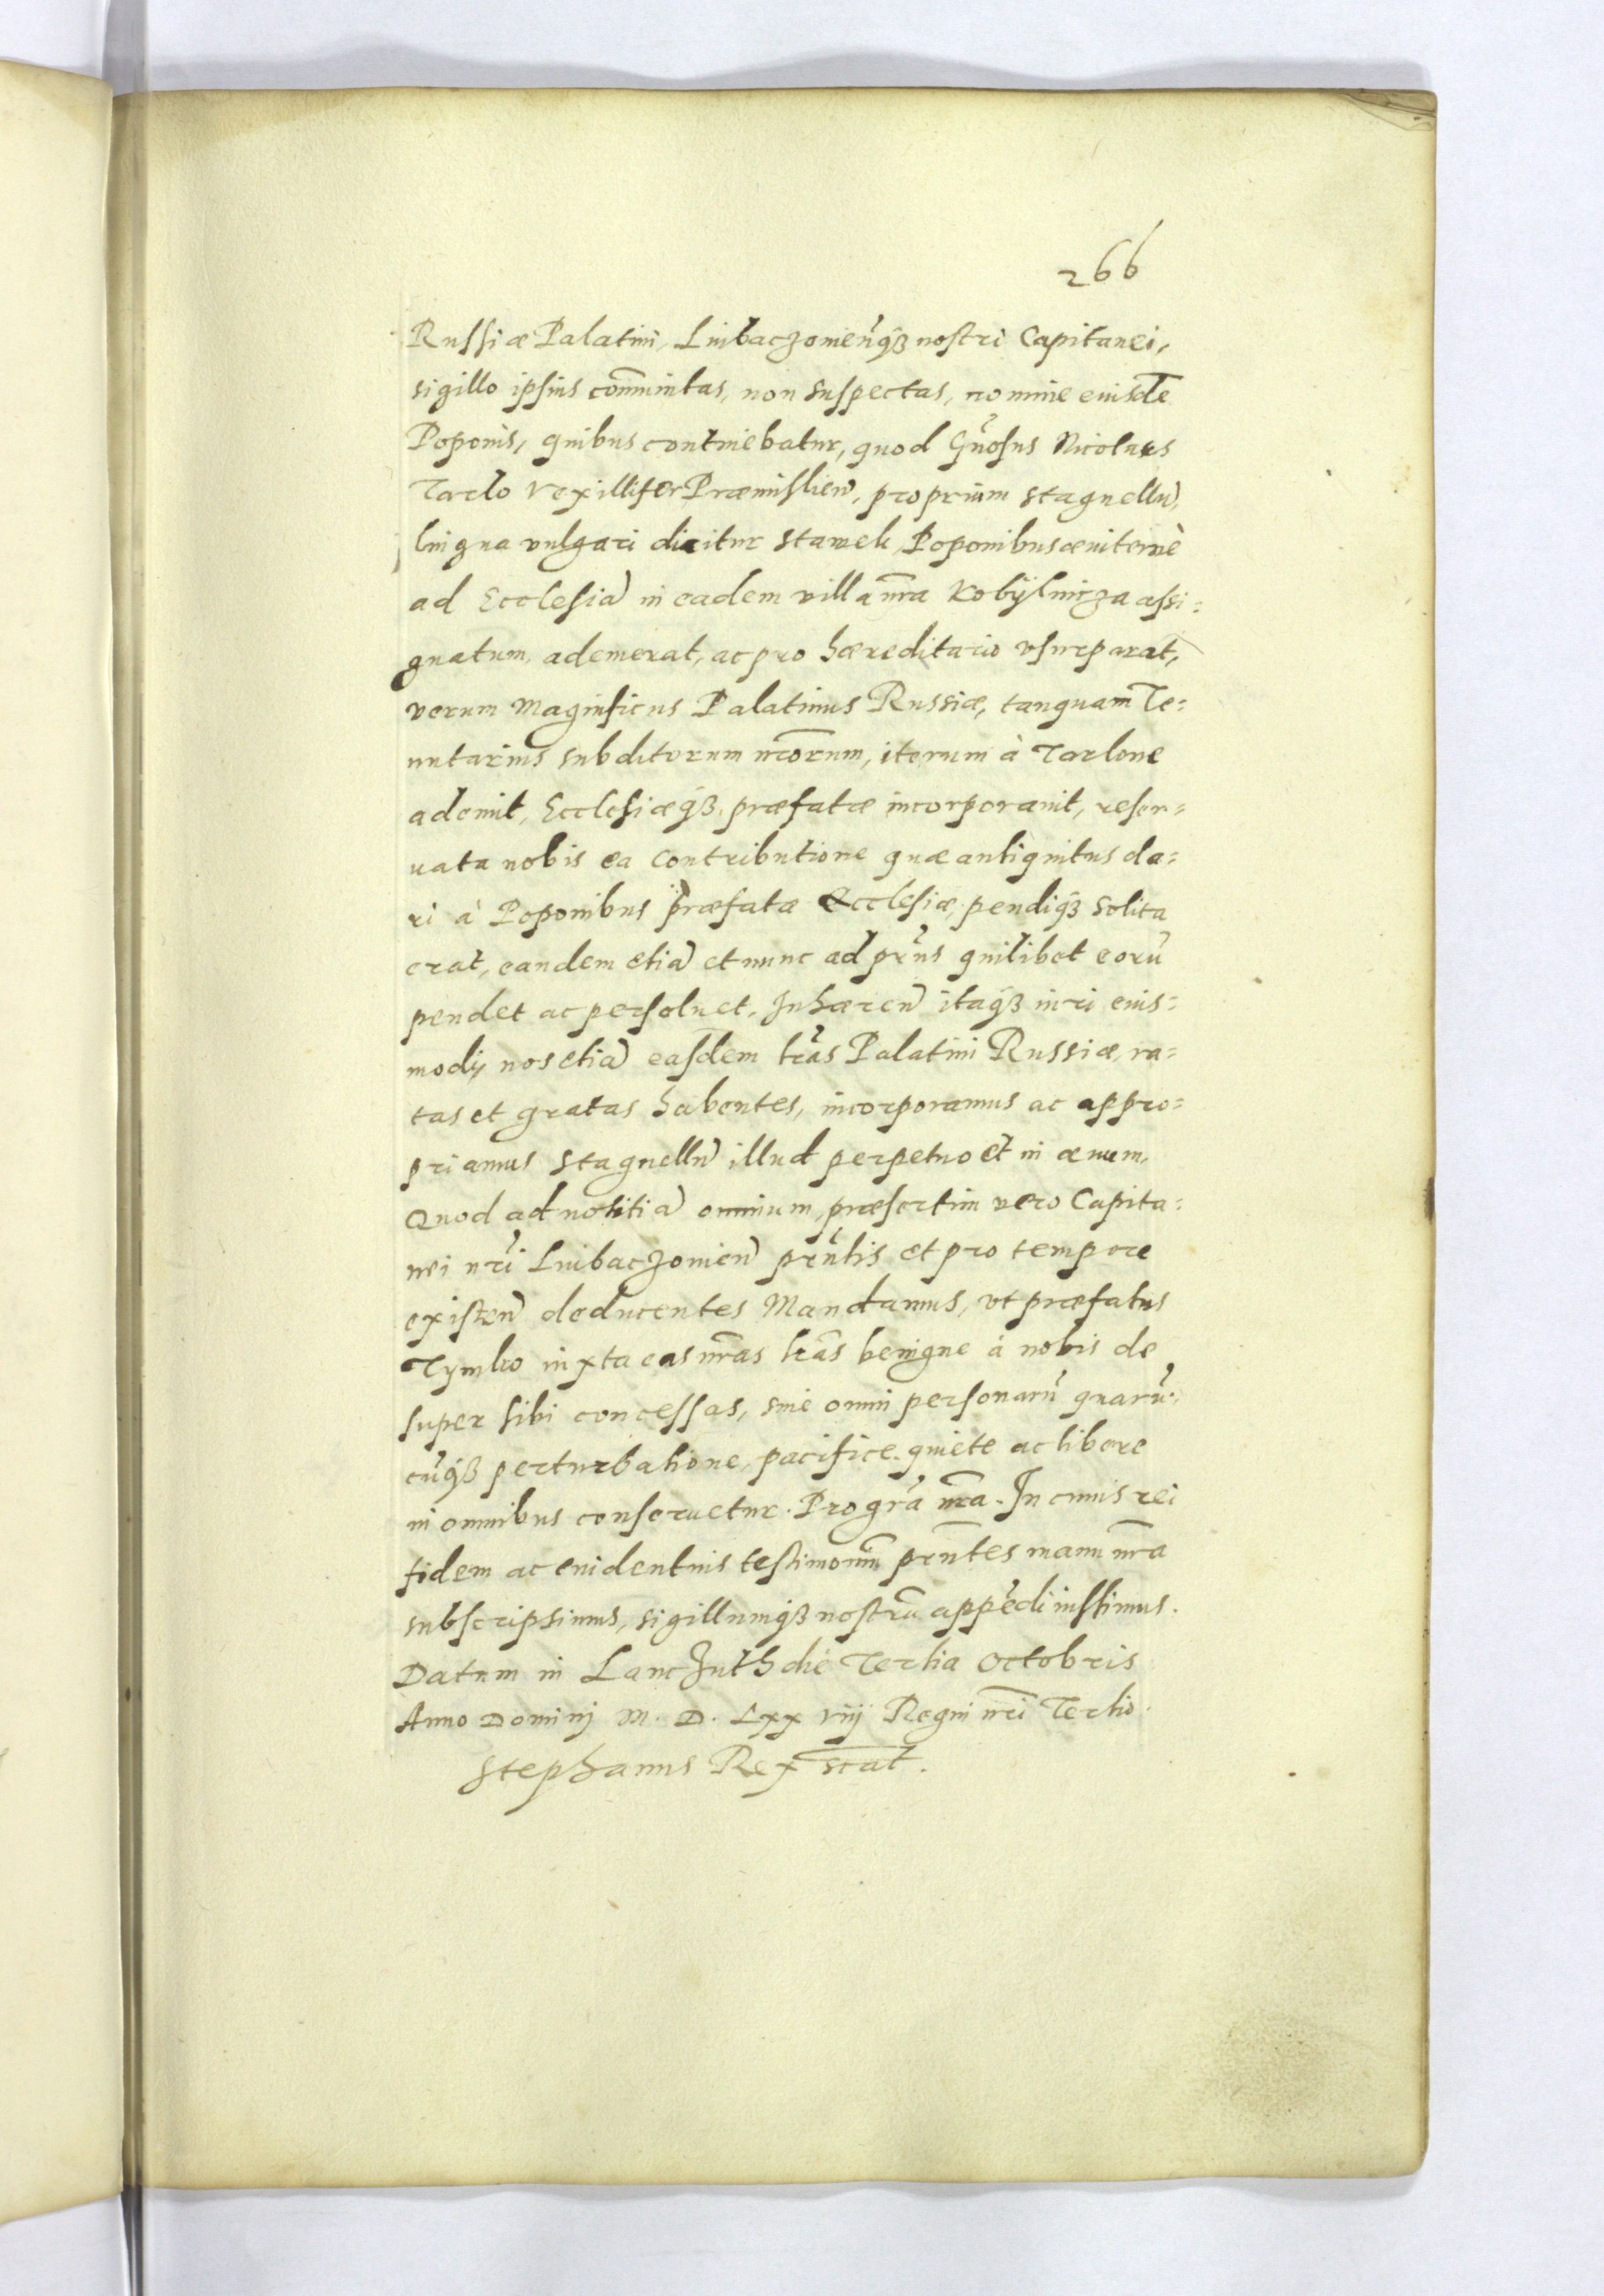 266
Russiæ Palatini, Luibaczouien̄q₃ nostri Capitanei,
sigillo ipsius com̄unitas, non suspectas, nomine eiusdē
Poponis, quibus continebatur, quod Gn̄osus Nicolaus
Tarlo Vexillifer Præmislien̄, proprium stagnellū,
lingua vulgari dicitur stawek, Poponibus æuiternè
ad Ecclesiā in eadem villa nr̄a Kobÿlnicza assi=
gnatum, ademerat, ac pro hæreditario vsurparat,
verum Magnificus Palatinus Russiæ, tanquam Te=
nutarius subditorum nr̄orum, iterum à Tarlone
ademit, Ecclesiæq₃ præfatæ incorporauit, reser=
uata nobis ea contributione quæ antiquitus da=
ri à Poponibus præfatæ Ecclesiæ, pendiq₃ solita
erat, eandem etiā et nunc ad prn̄s quilibet eorū
pendet ac persoluet. Inhæren̄ itaq₃ iuri eius=
modij nos etiā easdem lr̄as Palatini Russiæ, ra=
tas et gratas habentes, incorporamus ac appro=
priamus stagnellū illud perpetuo et in æuum.
Quod ad notitiā omnium, præsertim vero Capita=
nei nr̄i Luibaczouien̄ prn̄tis et pro tempore
existen̄ deducentes Mandamus, vt præfatus
Tymko iuxta eas nr̄as lr̄as benigne à nobis de
super sibi concessas, sine omni personarū quarū=
cūq₃ perturbatione, pacifice, quiete ac libere
in omnibus conseruetur. Pro gr̄a nr̄a. In cuius rei
fidem ac euidentius testimoniū prn̄tes manu nr̄a
subscripsimus, sigillumq₃ nostrū appēdi iussimus.
Datum in Lanczuth die Tertia Octobris
Anno Domini M. D. Lxx viij Regni nr̄i Tertio.
Stephanus Rex scat̄.